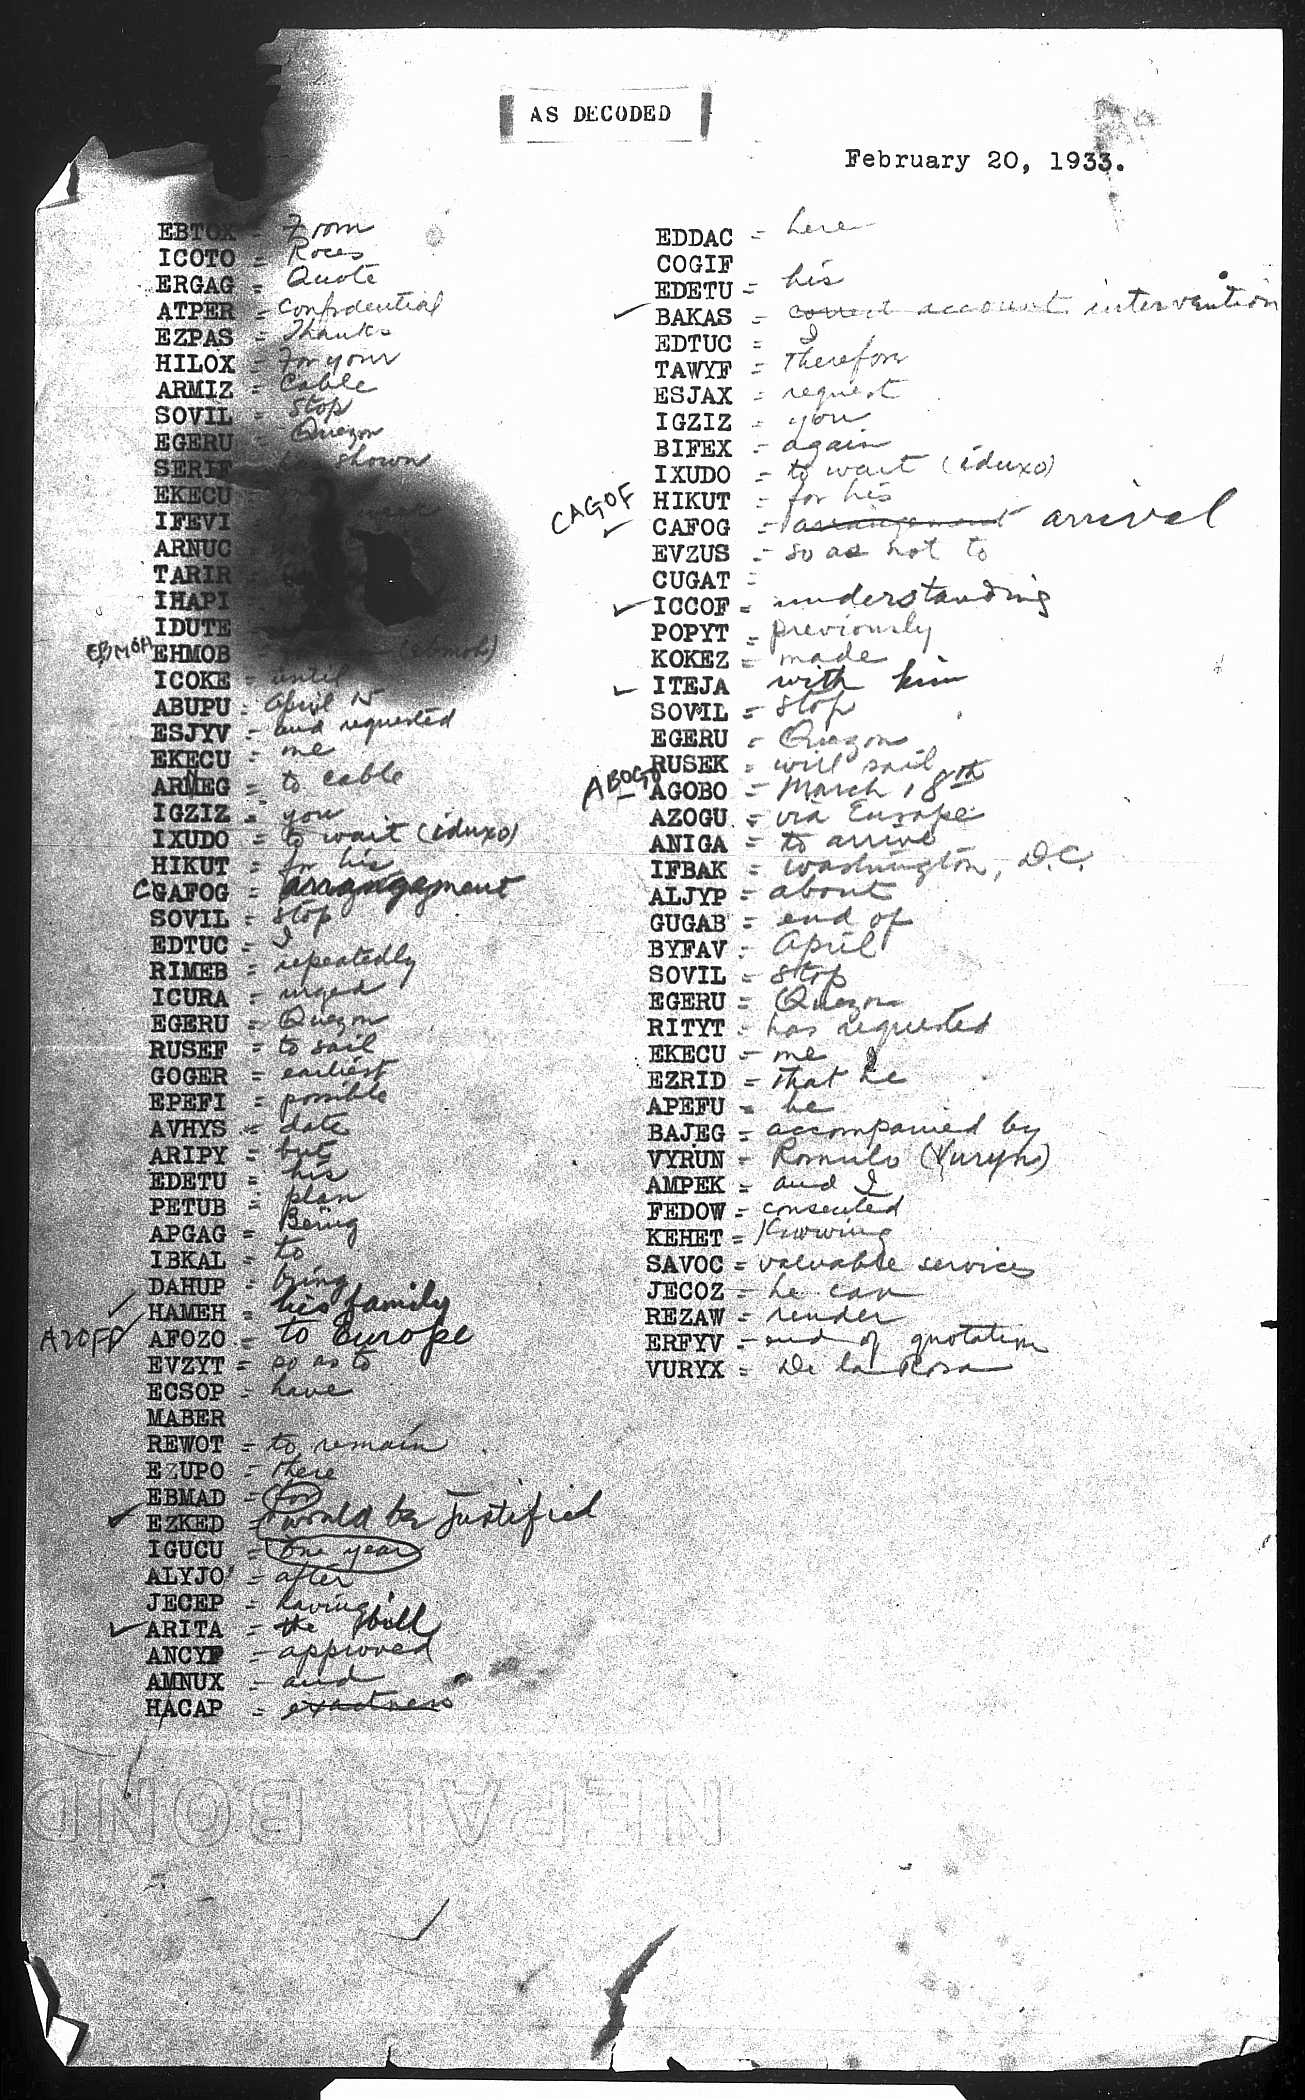 AS DECODED
February 20, 1933.
EBTOX = From
ICOTO = Roces
ERGAG = Quote
ATPER = Confidential
EZPAS = Thanks
HILOX = For your
ARMIZ = Cable
SOVIL = Stop
EGERU = Quezon
SERIF = has shown
EKECU
IFEVI
ARNUC
TARIR
IHAPI
IDUTE
EBMOH EHMOB (ebmoh)
ICOKE = until
ABUPU = April 15
ESJYV = and requested
EKECU = me
ARMEG = to cable
IGZIZ = you
IXUDO = to wait (iduxo)
HIKUT = for his
C GAFOG = arrangement
SOVIL = stop
EDTUC = I
RIMEB = repeatedly
ICURA = urged
EGERU = Quezon
RUSEF = to sail
GOGER = earliest
EPEFI = possible
AVHYS = date
ARIPY = but
EDETU = his
PETUB = plan
APGAG = Being
IBKAL = to
DAHUP = bring
✓ HAMEH = his family
AZOFO ✓ AFOZO = to Europe
EVZYT = so as to
ECSOP = have
MABER
REWOT = to remain
EZUPO = there
EBMAD = for
✓ EZKED = would be justified
IGUCU = one year
ALYJO = after
JECEP = having
✓ ARITA = the bill
ANCYF = approved
AMNUX = and
HACAP = exactness
EDDAC = here
COGIF
EDETU = his
✓ BAKAS = correct account intervention
EDTUC = I
TAWYF = therefore
ESJAX = request
IGZIZ = you
BIFEX = again
IXUDO = to wait (iduxo)
HIKUT = for his
CAGOF ✓ CAFOG = arrangement arrival
EVZUS = so as not to
CUGAT =
✓ ICCOF = understanding
POPYT = previously
KOKEZ = made
✓ ITEJA with him
SOVIL = stop
EGERU = Quezon
RUSEK = will sail
ABOGO AGOBO = March 18th
AZOGU = via Europe
ANIGA = to arrive
IFBAK = Washington, D.C.
ALJYP = about
GUGAB = end of
BYFAV = April
SOVIL = stop
EGERU = Quezon
RITYT = has requested
EKECU = me
EZRID = that he
APEFU = be
BAJEG = accompanied by
VYRUN = Romulo (Vuryn)
AMPEK = and I
FEDOW = consented
KEHET = Knowing
SAVOC = valuable services
JECOZ = he can
REZAW = render
ERFYV = end of quotation
VURYX = De la Rosa